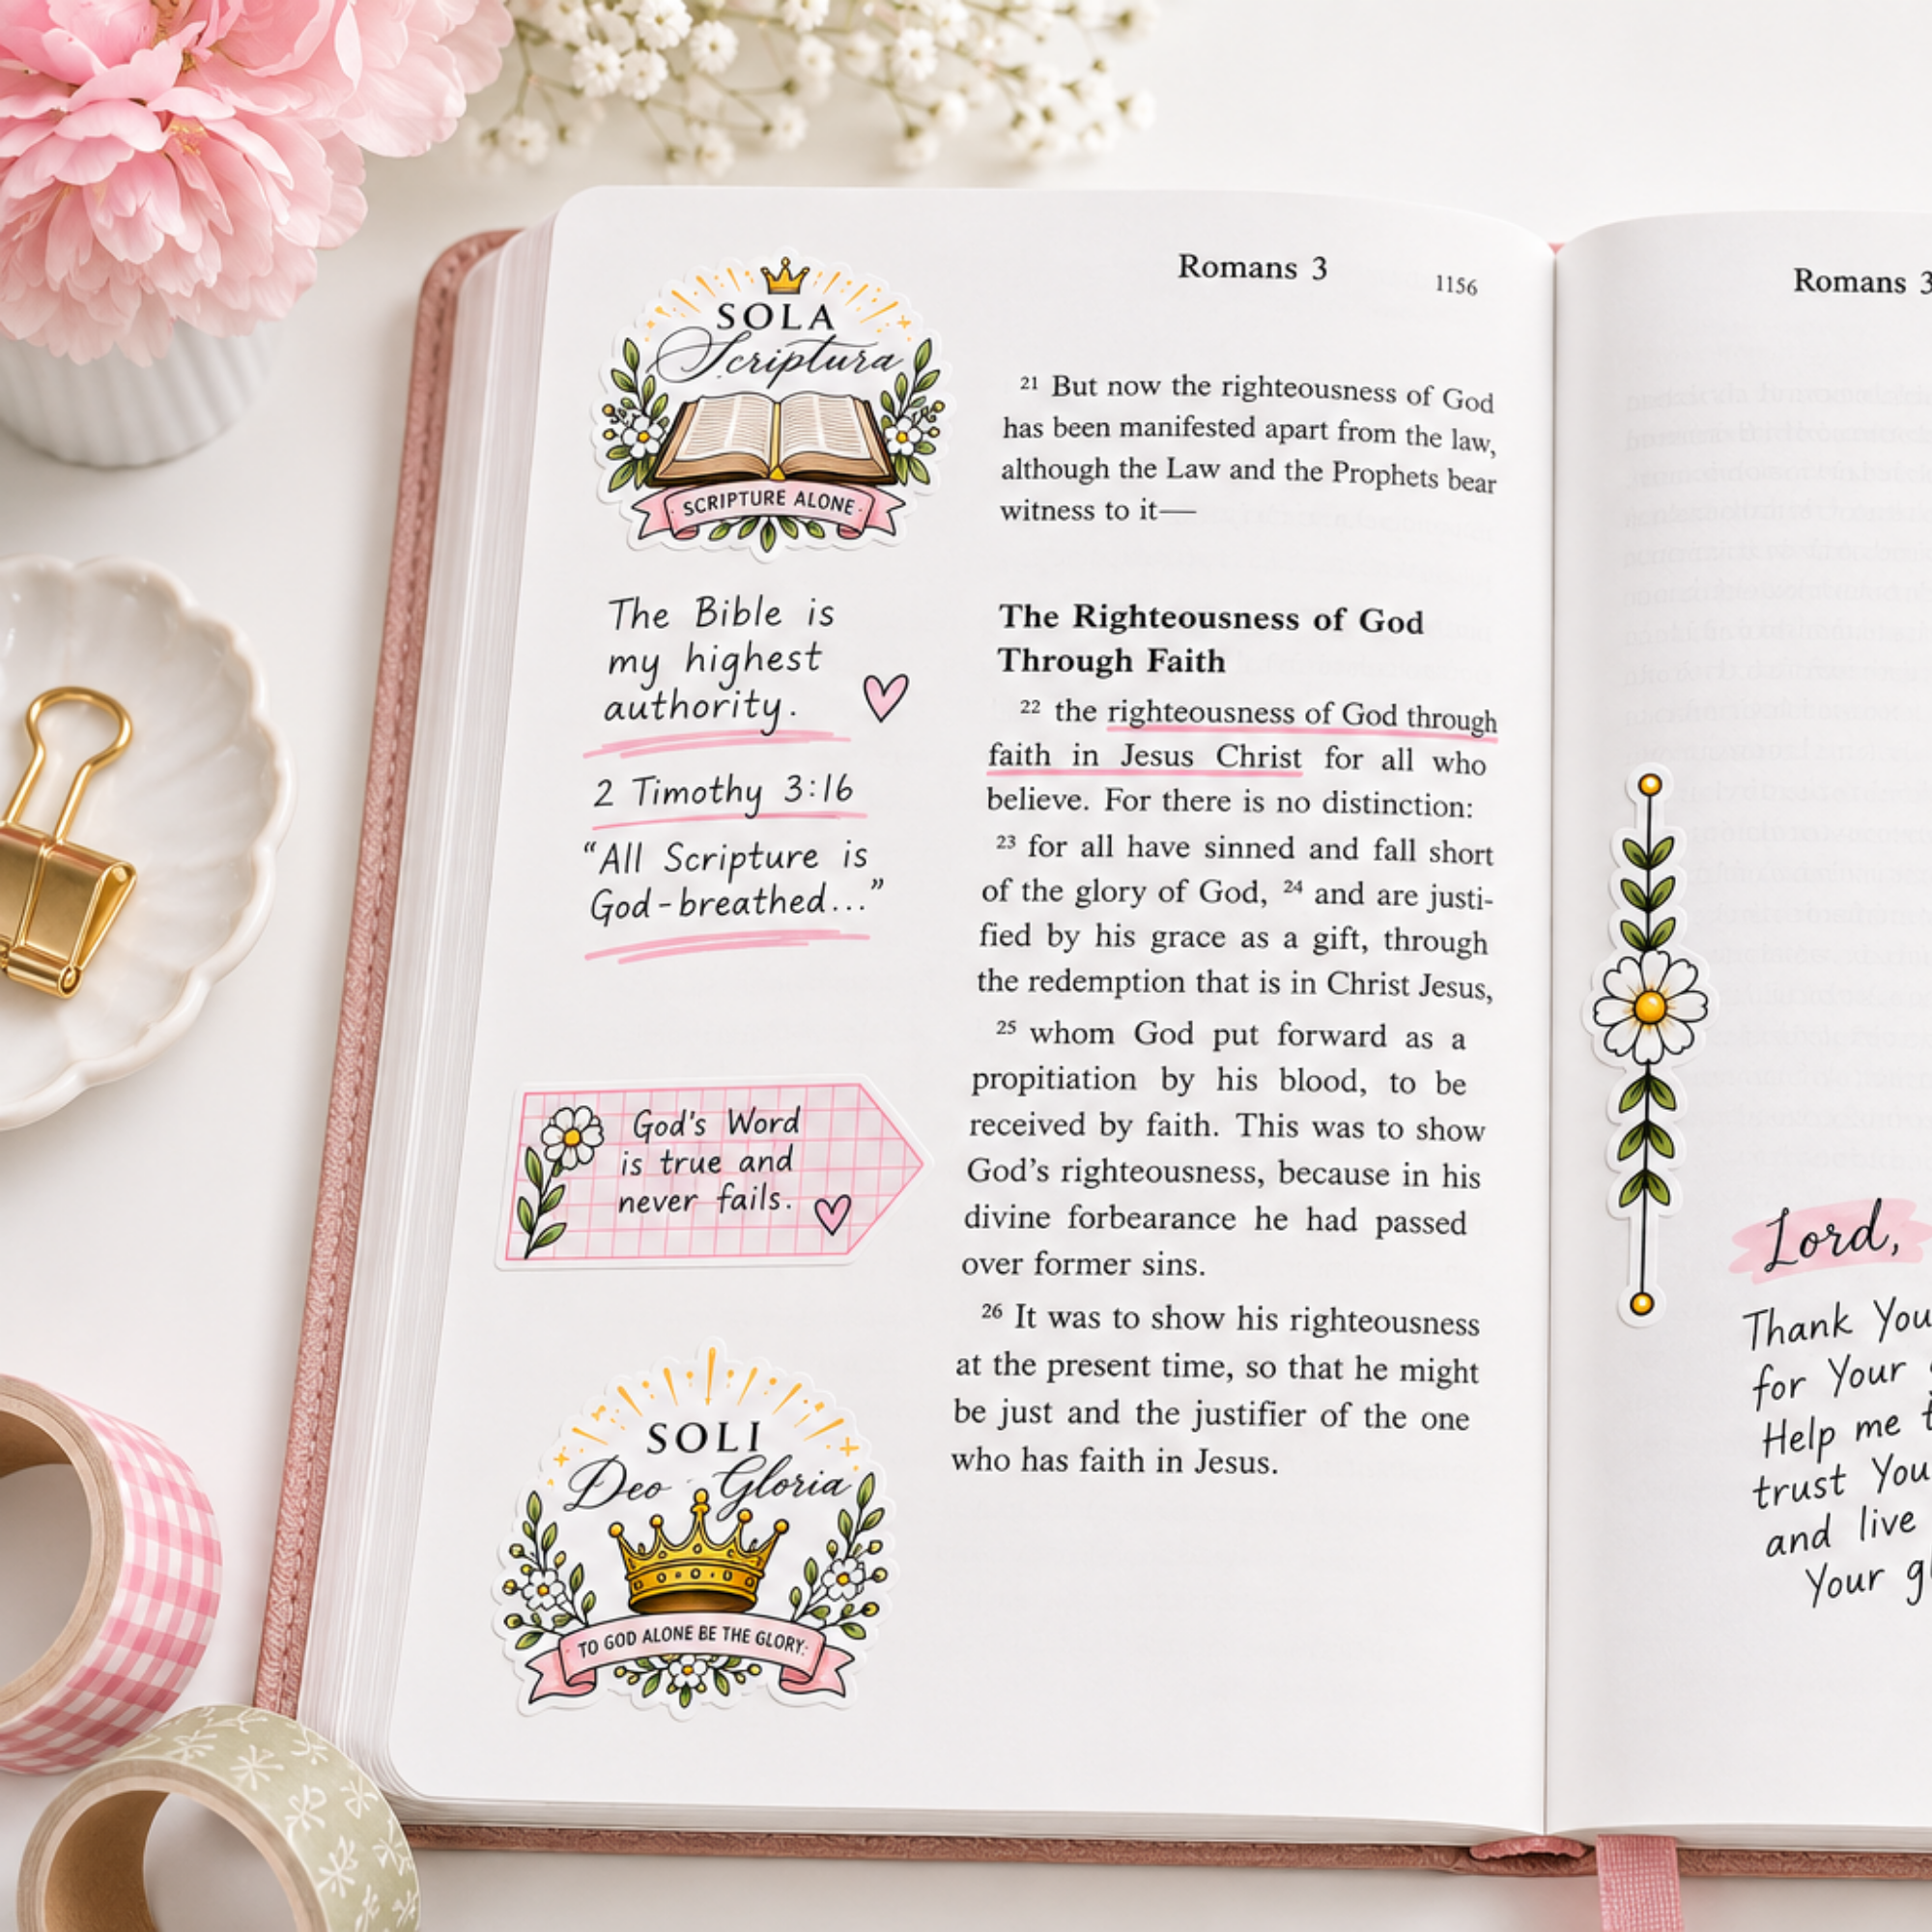 SOLA
Scriptura
SCRIPTURE ALONE
The Bible is
my highest
authority.
2 Timothy 3:16
“All Scripture is
God-breathed...”
God's Word
is true and
never fails.
SOLI
Deo Gloria
TO GOD ALONE BE THE GLORY
Romans 3
1156
21 But now the righteousness of God
has been manifested apart from the law,
although the Law and the Prophets bear
witness to it—
The Righteousness of God
Through Faith
22 the righteousness of God through
faith in Jesus Christ for all who
believe. For there is no distinction:
23 for all have sinned and fall short
of the glory of God, 24 and are justi-
fied by his grace as a gift, through
the redemption that is in Christ Jesus,
25 whom God put forward as a
propitiation by his blood, to be
received by faith. This was to show
God’s righteousness, because in his
divine forbearance he had passed
over former sins.
26 It was to show his righteousness
at the present time, so that he might
be just and the justifier of the one
who has faith in Jesus.
Romans 3
Lord,
Thank You
for Your
Help me
trust You
and live
Your